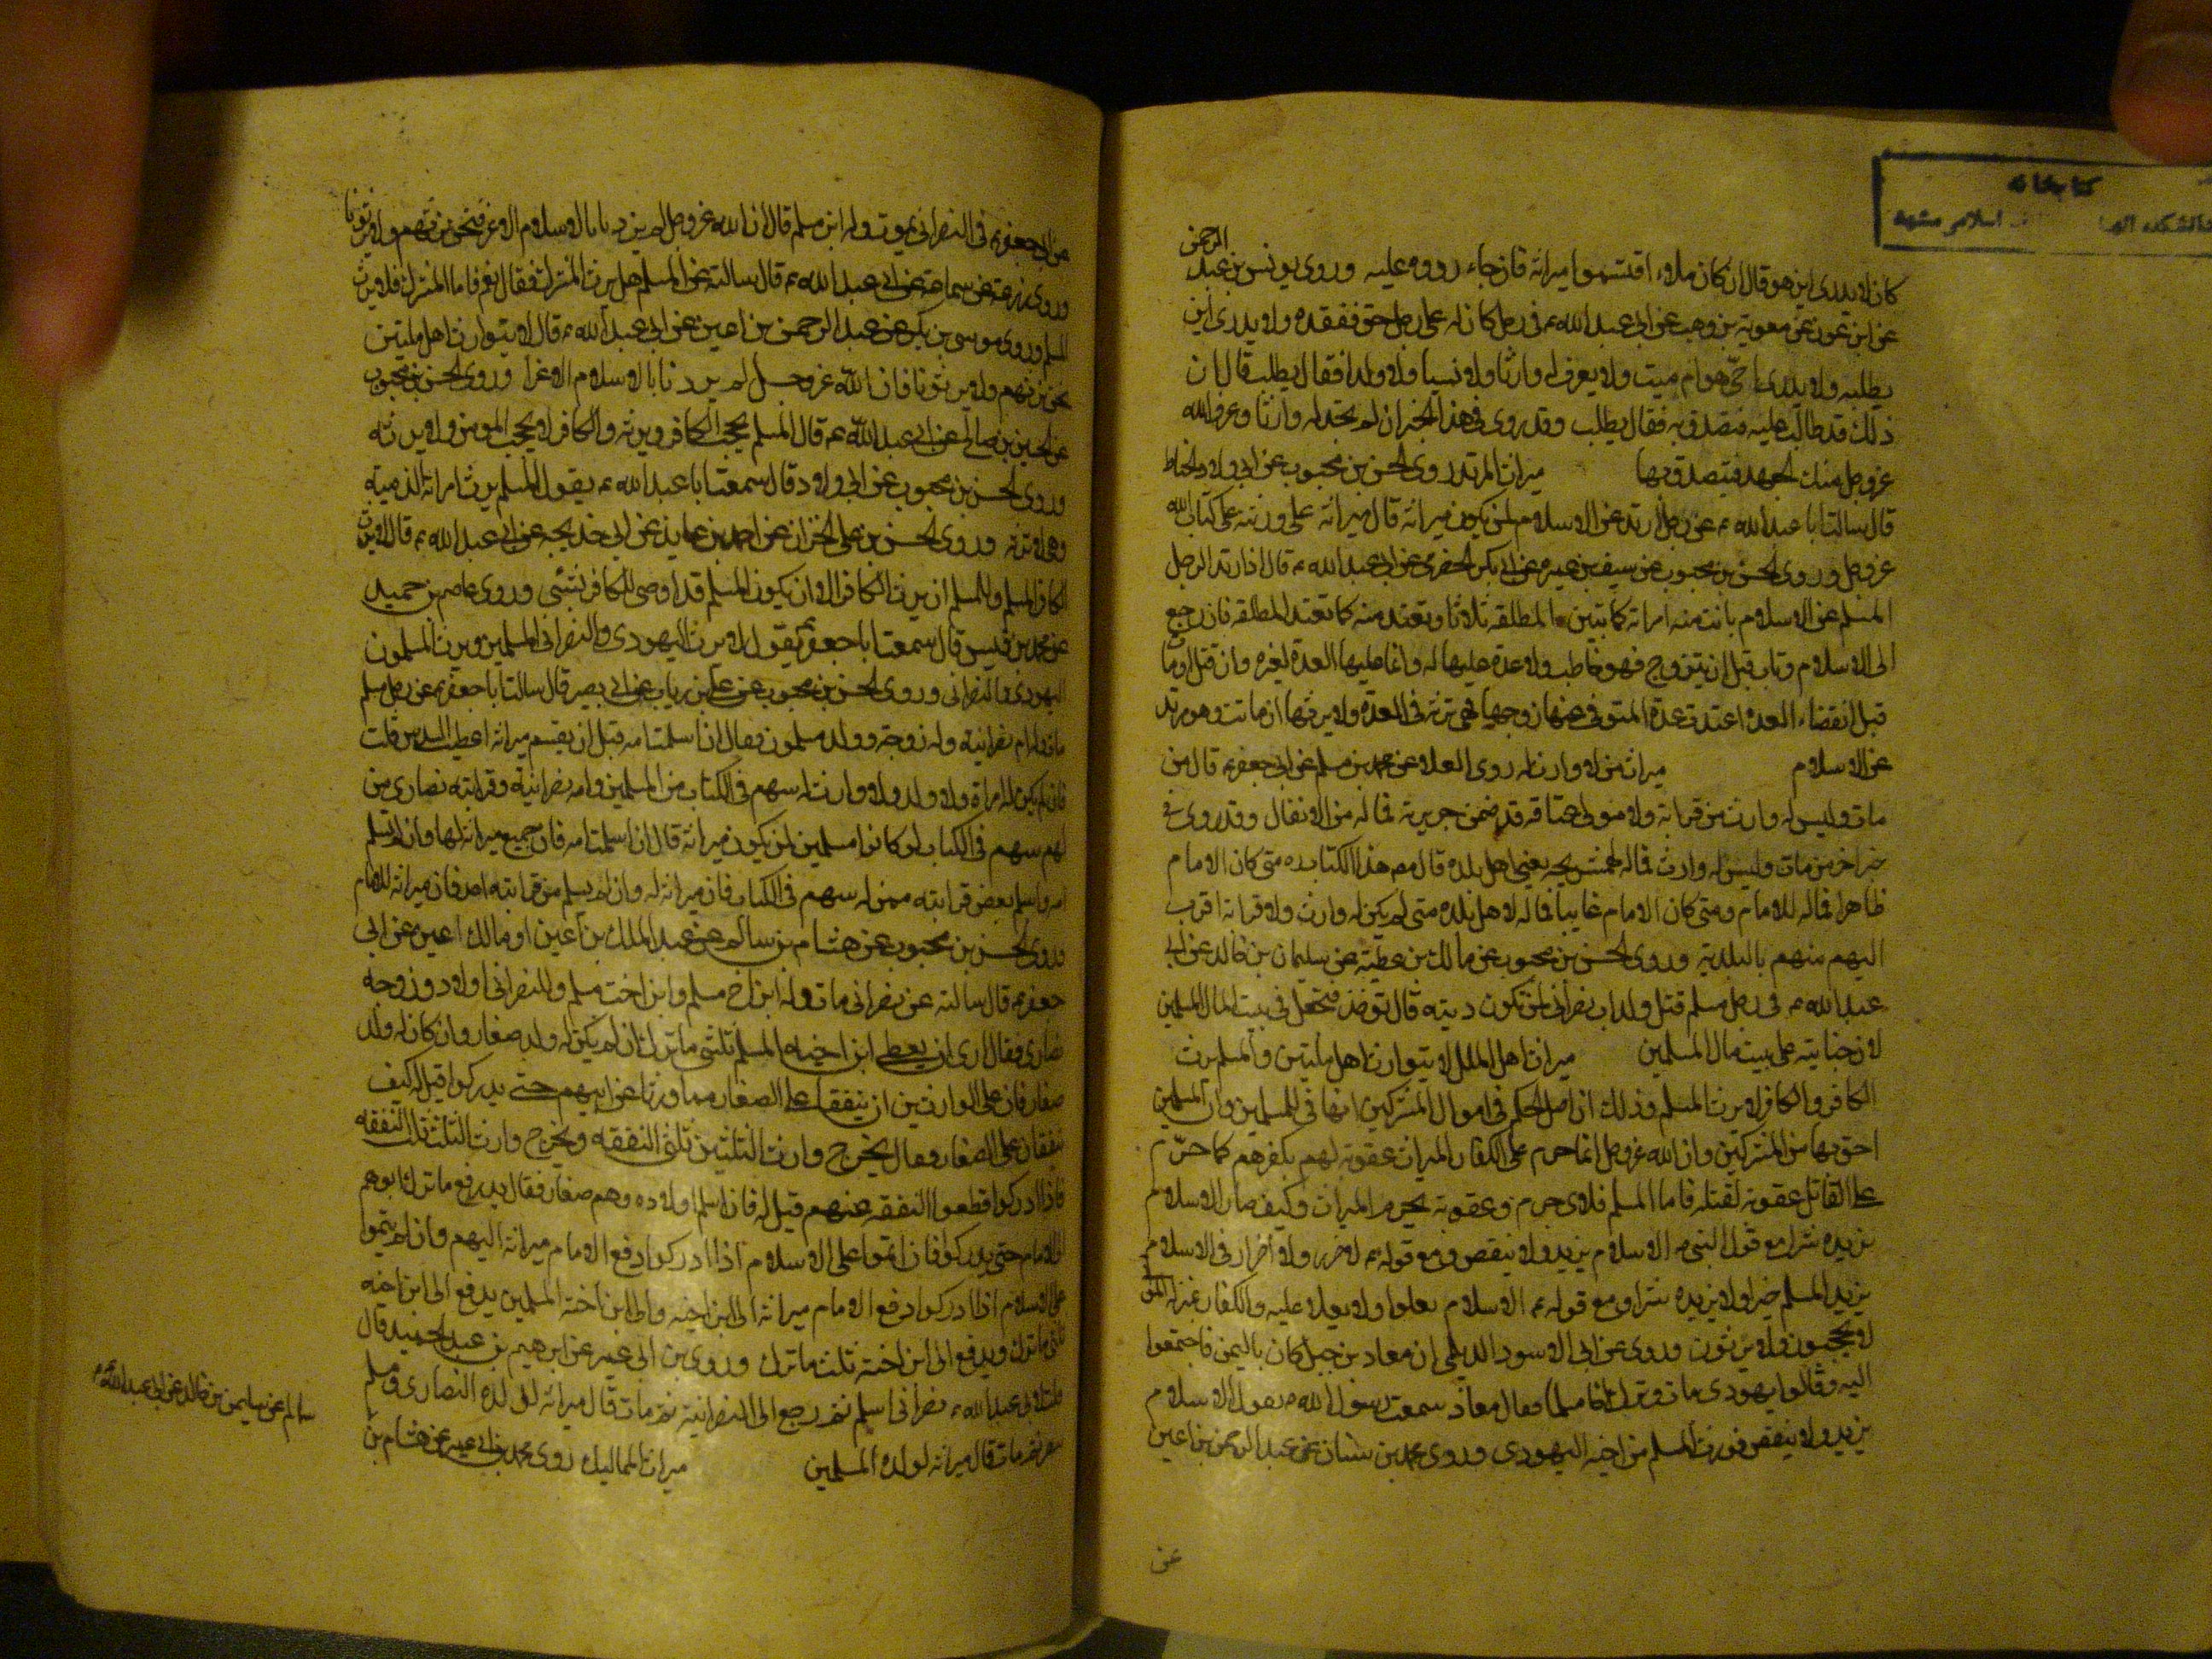 كتابخانه
دانشكده الهيا اسلامى مشهد
كان لا يدرى اين هو قال ان كان ملاء اقتسموا ميراثه فان جاء ردوه عليه وروى يونس بن عبد الرحمن
عن ابن عون عن معوية بن وهب عن ابى عبد الله ع فى رجل كان له على رجل حق ففقده ولا يدرى اين
يطلبه ولا يدرى احىّ هو ام ميت ولا يعرف له وارثا ولا نسيبا ولا ولدا فقال يطلب قال ان
ذلك قد طال عليه فيتصدق به فقال يطلب وقد روى فى هذا الخبر ان لم يجد له وارثا وعرف الله
عز وجل منك الجهد فيتصدق بها ميراث المرتد روى الحسن بن محبوب عن ابى ولاد الحناط
قال سالت ابا عبد الله ع عن رجل ارتد عن الاسلام لمن يكون ميراثه قال ميراثه على ورثته على كتاب الله
عز وجل وروى الحسن بن محبوب عن سيف بن عميره عن ابى بكر الحضرمى عن ابى عبد الله ع قال اذا ارتد الرجل
المسلم عن الاسلام بانت منه امراته كما تبين المطلقه ثلاثا وتعتد منه كما تعتد المطلقه فان رجع
الى الاسلام وتاب قبل ان يتزوج فهو خاطب ولا عدة عليها له وانما عليها العدة لغيره وان قتل او مات
قبل انقضاء العده اعتدت عدة المتوفى عنها زوجها فهى ترثه فى العدة ولا يرثها ان ماتت وهو مرتد
عن الاسلام ميراث من لا وارث له روى العلا عن محمد بن مسلم عن ابى جعفر ع قال من
مات وليس له وارث من قرابة ولا مولى عتاقه قد ضمن جريرته فماله من الانفال وقد روى فى
خبر اخر من مات وليس له وارث فماله لهمشريجه يعنى اهل بلده قال مصـ هذا الكتاب ره متى كان الامام
ظاهرا فماله للامام ومتى كان الامام غايبا فماله لاهل بلده متى لم يكن له وارث ولا قرابة اقرب
اليهم منهم بالبلدية وروى الحسن بن محبوب عن مالك بن عطية عن سليمان بن خالد عن ابى
عبد الله ع فى رجل مسلم قتل وله اب نصرانى لمن تكون ديته قال توخذ فتجعل فى بيت المال المسلمين
لان جنايته على بيت مال المسلمين ميراث اهل الملل لا يتوارث اهل ملتين والمسلم يرث
الكافر والكافر لا يرث المسلم وذلك ان اصل الحكم فى اموال المشركين انها فى للمسلمين وان المسلمين
احق بها من المشركين وان الله عز وجل انما حرم على الكفار الميراث عقوبة لهم بكفرهم كما حرّم
على القاتل عقوبة لقتله فاما المسلم فلاى جرم و عقوبة يحرم الميراث وكيف صار الاسلام
يزيده شرا مع قول النبى ص الاسلام يزيد ولا ينقص ومع قوله ع لا ضرر ولا اضرار فى الاسلام
يزيد المسلم خيرا ولا يزيده شرا ومع قوله ع الاسلام يعلوا ولا يعلا عليه والكفار بمنزلة الموتى
لا يحجبون ولا يرثون وروى عن ابى الاسود الديلمى ان معاذ بن جبل كان باليمن فاجتمعوا
اليه وقالوا يهودى مات وترك اخا مسلما فقال معاذ سمعت رسول الله ص يقول الاسلام
يزيد ولا ينقص فورث المسلم من اخيه اليهودى وروى محمد بن سنان عن عبد الرحمن بن اعين
عن
عن ابى جعفر ع فى النصرانى يموت وله ابن مسلم قال ان الله عز وجل لم يزدنا بالاسلام الا عزا فنحن نرثهم ولا يرثونا
وروى زرعة عن سماعة عن ابى عبد الله ع قال سالته عن المسلم هل يرث المشرك فقال نعم فاما المشرك فلا يرث
المسلم وروى موسى بن بكر عن عبد الرحمن بن اعين عن ابى عبد الله ع قال لا يتوارث اهل ملتين
نحن نرثهم ولا يرثونا فان الله عز وجل لم يزدنا بالاسلام الا عزا وروى الحسن بن محبوب
عن الحسن بن صالح عن ابى عبد الله ع قال المسلم يحجب الكافر ويرثه والكافر لا يحجب المومن ولا يرثه
وروى الحسن بن محبوب عن ابى ولاد قال سمعت ابا عبد الله ع يقول المسلم يرث امراته الذمية
وهى لا ترثه وروى الحسن بن على الخزاز عن احمد بن عايذ عن ابى خديجه عن ابى عبد الله ع قال لا يرث
الكافر المسلم وللمسلم ان يرث الكافر الا ان يكون المسلم قد اوصى للكافر بشئ وروى عاصم بن حميد
عن محمد بن قيس قال سمعت ابا جعفر ع يقول لا يرث اليهودى والنصرانى المسلمين ويرث المسلمون
اليهودى والنصرانى وروى الحسن بن محبوب عن على بن رياب عن ابى بصير قال سالت ابا جعفر ع عن رجل مسلم
مات وله ام نصرانية وله زوجة وولد مسلمون فقال ان اسلمت امه قبل ان يقسم ميراثه اعطيت السدس قلت
فان لم يكن له امراة ولا ولد ولا وارث له سهم فى الكتاب من المسلمين وامه نصرانية وقرابته نصارى ممن
لهم سهم فى الكتاب لو كانوا مسلمين لمن يكون ميراثه قال ان اسلمت امه فان جميع ميراثه لها وان لم تسلم
امه واسلم بعض قرابته ممن له سهم فى الكتاب فان ميراثه له وان لم يسلم من قرابته احد فان ميراثه للامام
وروى الحسن بن محبوب عن هشام بن سالم عن عبد الملك بن اعين او مالك اعين عن ابى
جعفر ع قال سالته عن نصرانى مات وله ابن اخ مسلم وابن اخت مسلم وللنصرانى اولاد وزوجة
نصارى فقال ارى ان يعطى ابن اخيه المسلم ثلثى ما ترك ان لم يكن له ولد صغار وان كان له ولد
صغار فان على الوارثين ان ينفقا على الصغار مما ورثا عن ابيهم حتى يدركوا قيل له كيف
ينفقان على الصغار فقال يخرج وارث الثلثين ثلثى النفقه ويخرج وارث الثلث ثلث النفقه
فاذا ادركوا قطعوا النفقه عنهم قيل له فان اسلم اولاده وهم صغار فقال يدفع ما ترك ابوهم
الى الامام حتى يدركوا فان اتموا على الاسلام اذا ادركوا دفع الامام ميراثه اليهم وان لم يتموا
على الاسلام اذا ادركوا دفع الامام ميراثه الى ابن اخيه والى ابن اخته المسلمين يدفع الى ابن اخيه
ثلثى ما ترك ويدفع الى ابن اخته ثلث ما ترك وروى بن ابى عمير عن ابرهيم بن عبد الحميد قال
قلت لابى عبد الله ع نصرانى اسلم ثم رجع الى النصرانية ثم مات قال ميراثه لولده النصارى ومسلم
تنصر ثم مات قال ميراثه لولده المسلمين ميراث المماليك روى محمد بن ابى عمير عن هشام بن
سالم عن سليمن بن خالد عن ابى عبد الله ع